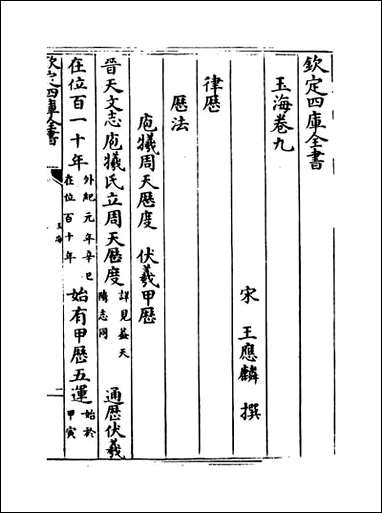 欽定四庫全書
玉海卷九
宋 王應麟 撰
律歴
歴法
庖犧周天歴度 伏羲甲歴
晉天文志庖犧氏立周天歴度詳見蓋天隋志同 通歴伏羲
在位百一十年外紀元年辛巳在位百十年 始有甲歴五運始於甲寅
欽定四庫全書
玉海